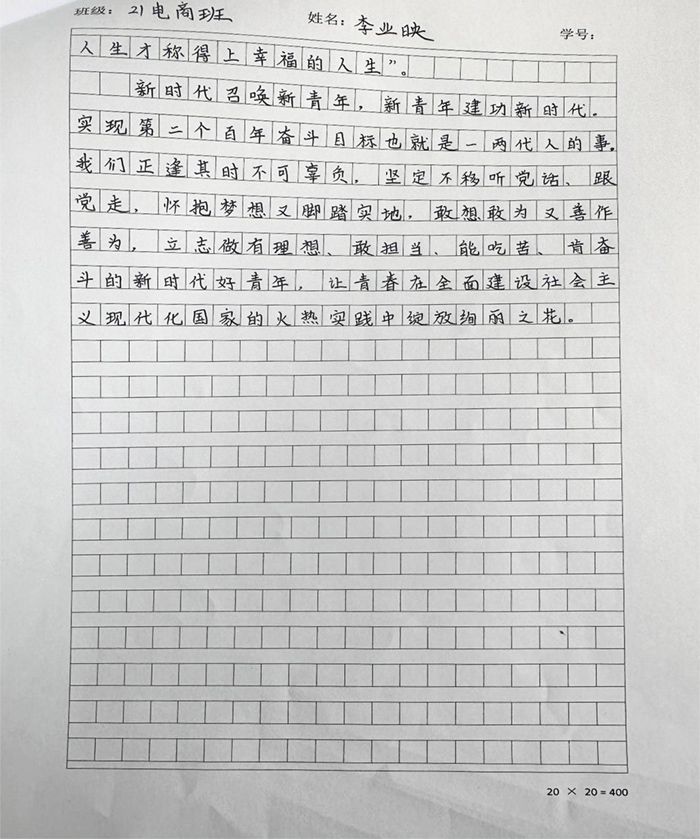 班级：21电商班 姓名：李业映 学号：
人生才称得上幸福的人生”。
新时代召唤新青年，新青年建功新时代。
实现第二个百年奋斗目标也就是一两代人的事。
我们正逢其时不可辜负，坚定不移听党话、跟
党走，怀抱梦想又脚踏实地，敢想敢为又善作
善为，立志做有理想、敢担当、能吃苦、肯奋
斗的新时代好青年，让青春在全面建设社会主
义现代化国家的火热实践中绽放绚丽之花。
20 × 20 = 400